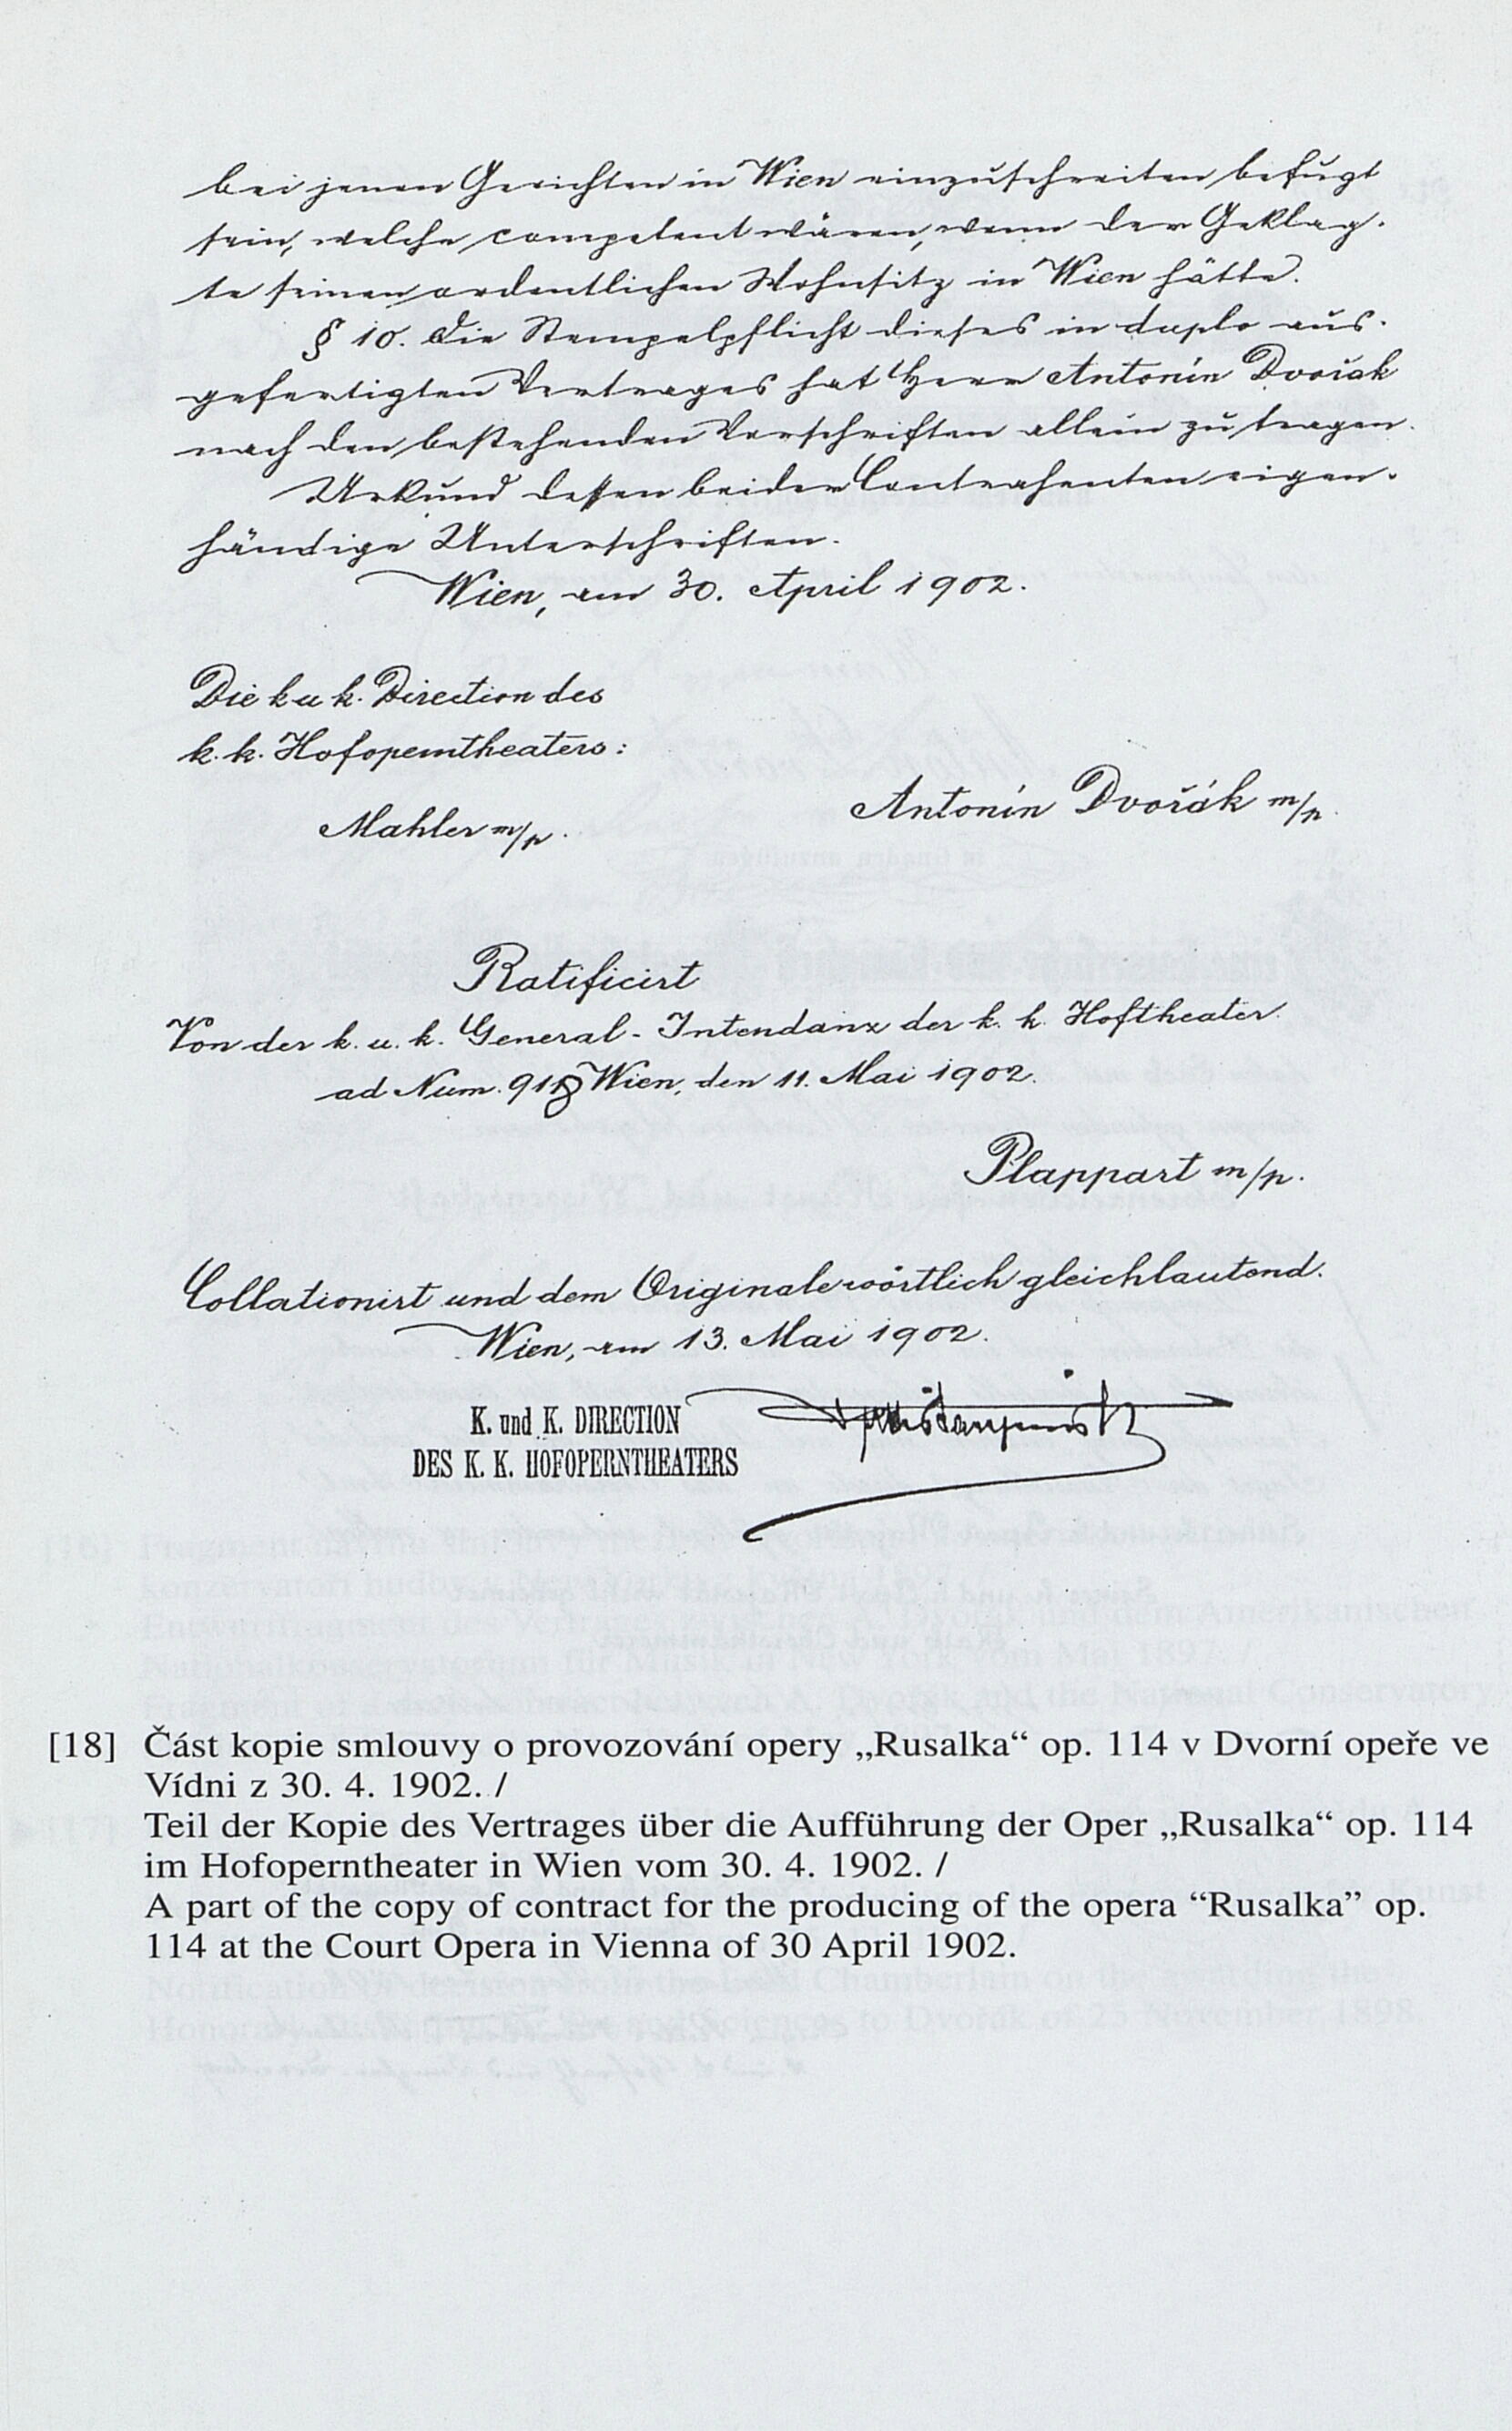 bei jenen Gerichten in Wien einzuschreiten befugt
sein, welche competent wären, wenn der Geklag-
te seinen ordentlichen Wohnsitz in Wien hätte.
§ 10. Die Stempelpflicht dieses in duplo aus-
gefertigten Vertrages hat Herr Antonín Dvořák
nach den bestehenden Vorschriften allein zu tragen.
Urkund dessen beider Contrahenten eigen-
händige Unterschriften.
Wien, am 30. April 1902.
Die k u k. Direction des
k. k. Hofoperntheaters:
Antonín Dvořák m/p.
Mahler m/p.
Ratificirt
Von der k. u. k. General-Intendanz der k. k. Hoftheater.
ad Num. 918 Wien, den 11. Mai 1902.
Plappart m/p.
Collationirt und dem Originale wörtlich gleichlautend.
Wien, am 13. Mai 1902.
K. und K. DIRECTION
DES K. K. HOFOPERNTHEATERS
[18] Část kopie smlouvy o provozování opery „Rusalka“ op. 114 v Dvorní opeře ve
Vídni z 30. 4. 1902. /
Teil der Kopie des Vertrages über die Aufführung der Oper „Rusalka“ op. 114
im Hofoperntheater in Wien vom 30. 4. 1902. /
A part of the copy of contract for the producing of the opera “Rusalka” op.
114 at the Court Opera in Vienna of 30 April 1902.